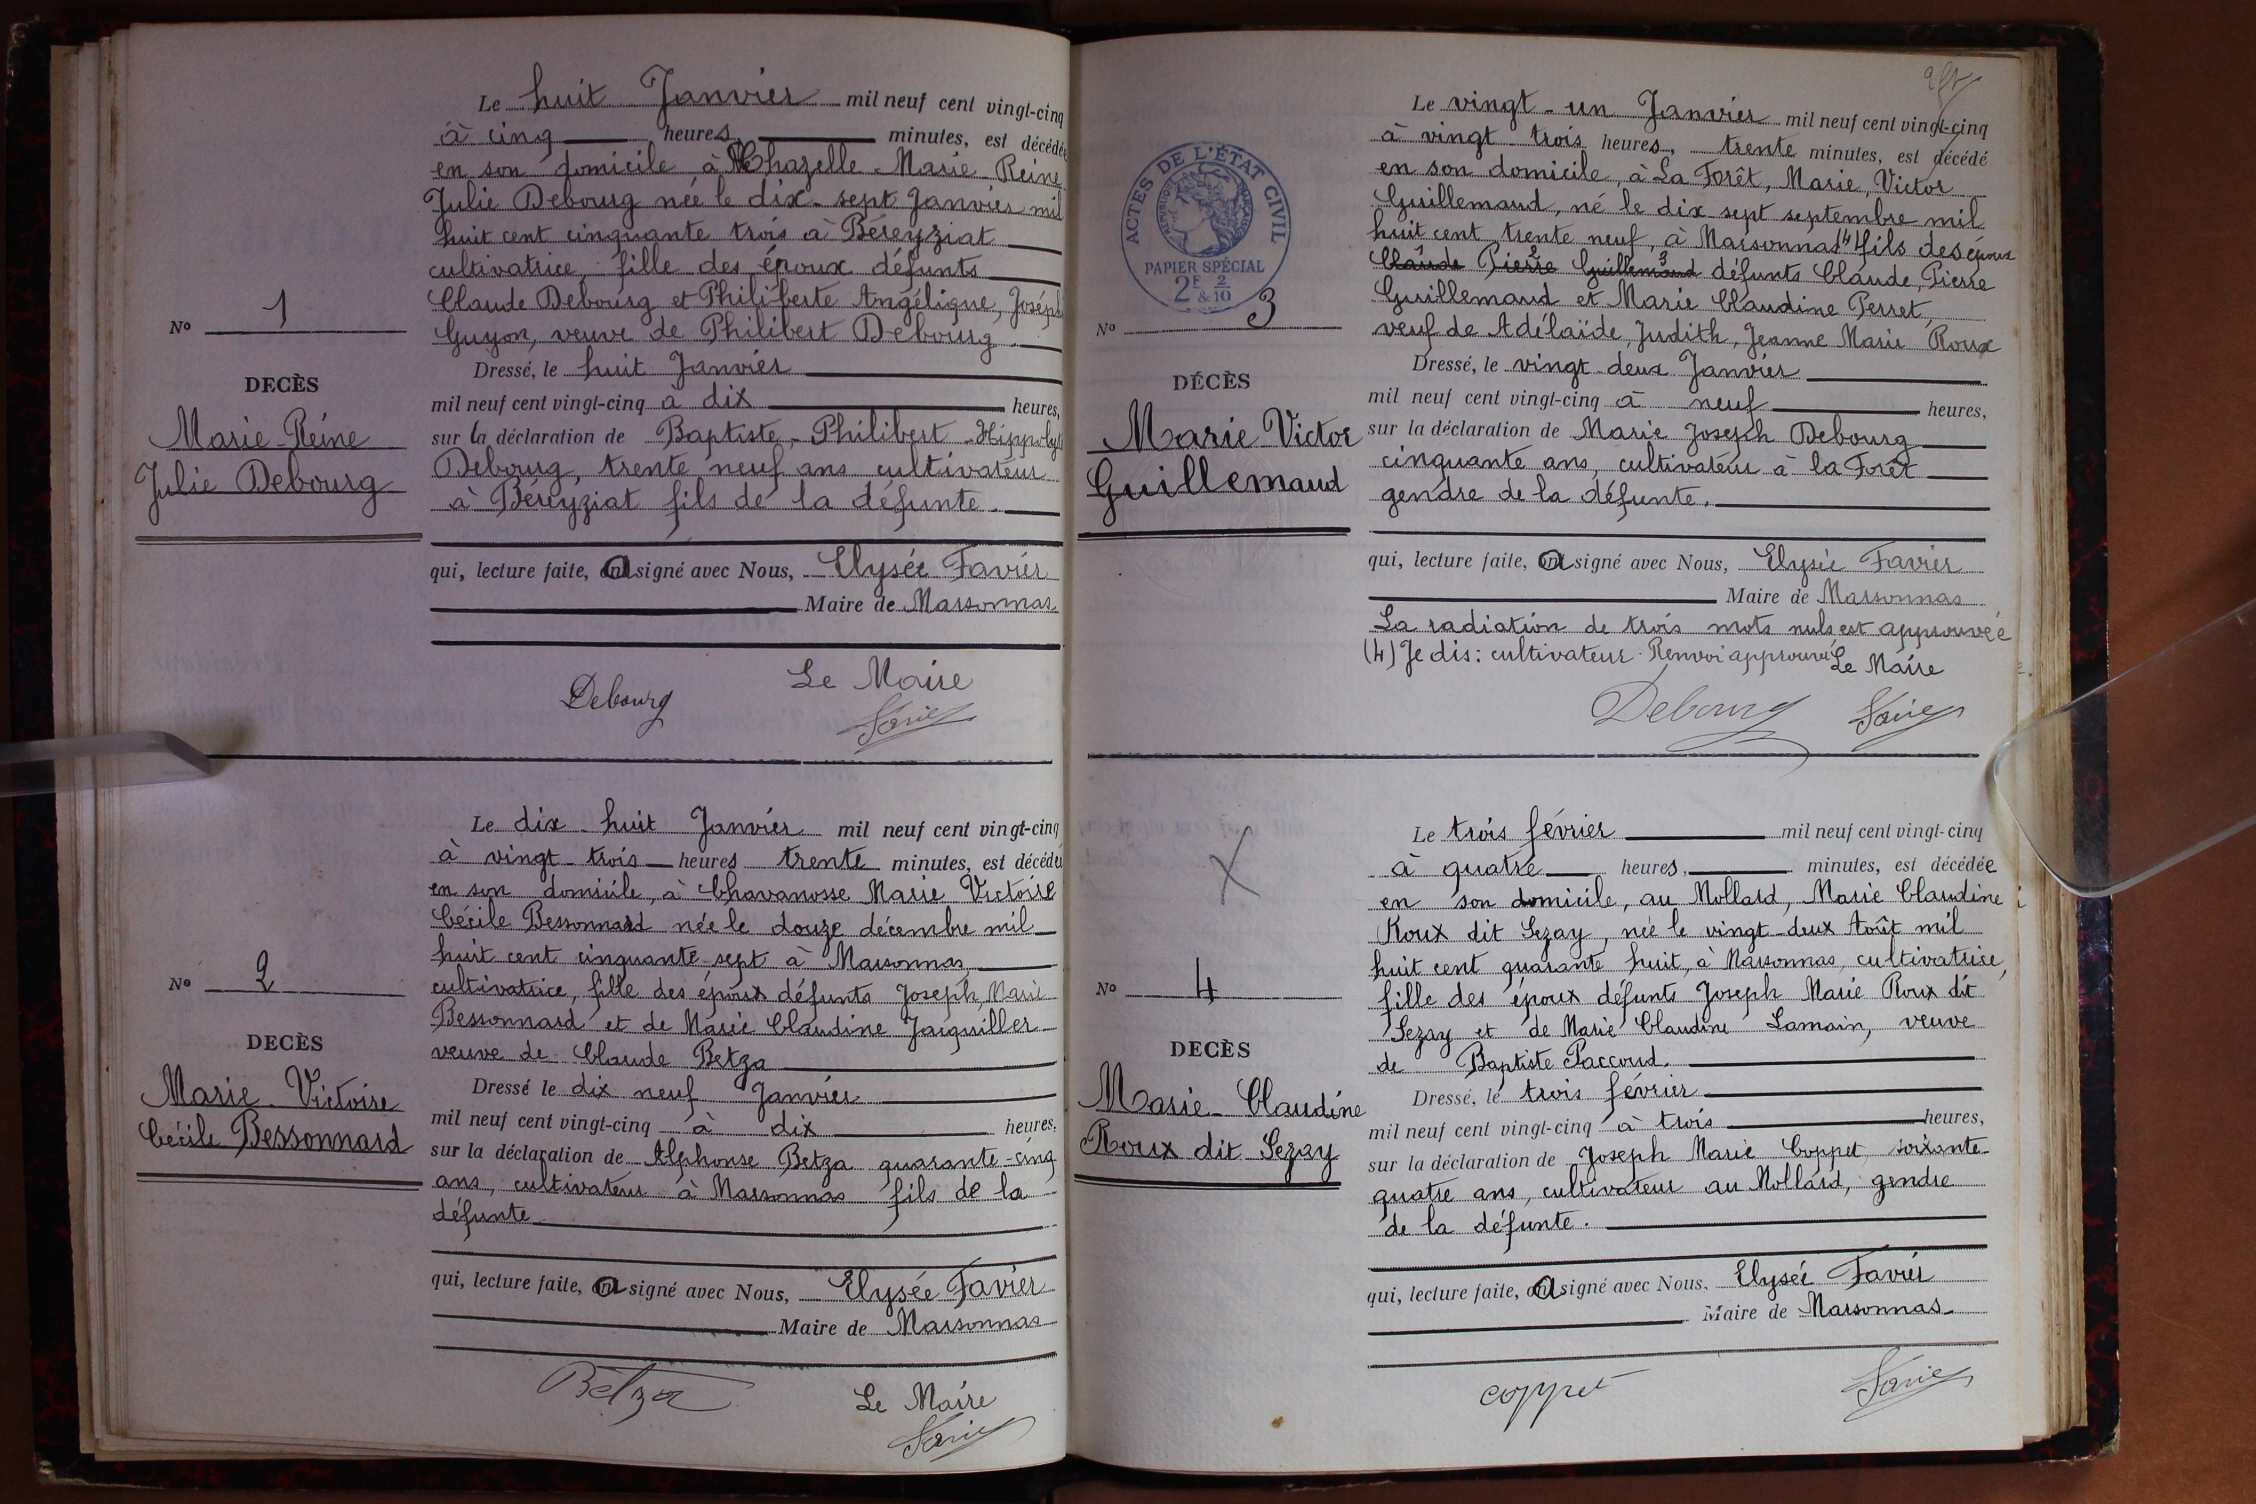 Le huit Janvier mil neuf cent vingt-cinq
à cinq heures minutes, est décédée
en son domicile à Chazelle Marie Reine
Julie Debourg née le dix-sept Janvier mil
huit cent cinquante trois à Béreyziat
cultivatrice, fille des époux défunts
Claude Debourg et Philiberte Angélique, Joséph
Guyon, veuve de Philibert Debourg.
Nº 1
DECÈS
Marie-Reine
Julie Debourg
Dressé, le huit Janvier
mil neuf cent vingt-cinq à dix heures,
sur la déclaration de Baptiste, Philibert Hippolyte
Debourg, trente neuf ans cultivateur
à Béreyziat fils de la défunte.
qui, lecture faite, a signé avec Nous, Elysée Favier
Maire de Marsonnas
Le Maire
Debourg
Favier
Le dix-huit Janvier mil neuf cent vingt-cinq
à vingt-trois heures trente minutes, est décédée
en son domicile, à Chavanosse Marie Victoire
Cécile Bessonnard née le douze décembre mil
huit cent cinquante-sept à Marsonnas,
cultivatrice, fille des époux défunts Joseph, Marie
Bessonnard et de Marie Claudine Jaiguiller
veuve de Claude Betza
Nº 2
DECÈS
Marie-Victoire
Cécile Bessonnard
Dressé le dix neuf Janvier
mil neuf cent vingt-cinq à dix heures,
sur la déclaration de Alphonse Betza quarante-cinq
ans, cultivateur à Marsonnas fils de la
défunte
qui, lecture faite, a signé avec Nous, Elysée Favier
Maire de Marsonnas
Betza
Le Maire
Favier
Le vingt-un Janvier mil neuf cent vingt-cinq
à vingt trois heures, trente minutes, est décédé
en son domicile, à La Forêt, Marie, Victor
Guillemaud, né le dix sept septembre mil
huit cent trente neuf, à Marsonnas (4) fils des époux
Claude Pierre Guillemaud défunts Claude, Pierre
Guillemaud et Marie Claudine Perret,
veuf de Adélaïde, Judith, Jeanne Marie Roux
ACTES DE L'ÉTAT CIVIL
PAPIER SPÉCIAL
2F & 2/10
Nº 3
DÉCÈS
Marie Victor
Guillemaud
Dressé, le vingt-deux Janvier
mil neuf cent vingt-cinq à neuf heures,
sur la déclaration de Marie Joseph Debourg
cinquante ans, cultivateur à la Forêt
gendre de la défunte.
qui, lecture faite, a signé avec Nous, Elysée Favier
Maire de Marsonnas
La radiation de trois mots nuls est approuvée
(4) Je dis: cultivateur. Renvoi approuvé Le Maire
Debourg
Favier
Le trois février mil neuf cent vingt-cinq
à quatre heures, minutes, est décédée
en son domicile, au Mollard, Marie Claudine
Roux dit Sezay, née le vingt-deux Août mil
huit cent quarante huit, à Marsonnas, cultivatrice,
fille des époux défunts Joseph Marie Roux dit
Sezay et de Marie Claudine Lamain, veuve
de Baptiste Paccoud.
Nº 4
DECÈS
Marie-Claudine
Roux dit Sezay
Dressé, le trois février
mil neuf cent vingt-cinq à trois heures,
sur la déclaration de Joseph Marie Coppet, soixante
quatre ans, cultivateur au Mollard, gendre
de la défunte.
qui, lecture faite, a signé avec Nous, Elysée Favier
Maire de Marsonnas
coppet
Favier